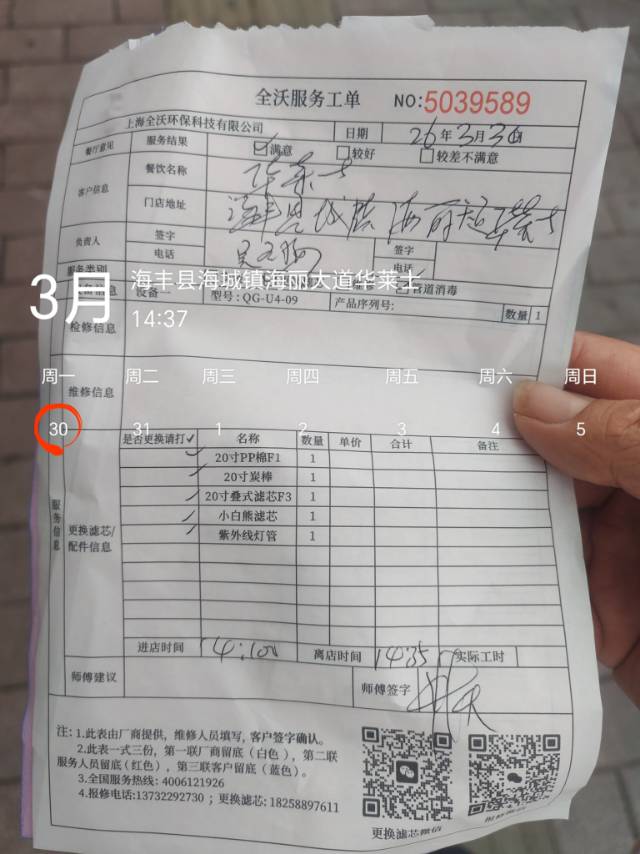 全沃服务工单 NO:5039589
上海全沃环保科技有限公司 日期 26年3月30日
餐厅意见 服务结果 满意 较好 较差不满意
客户信息 餐饮名称 华莱士
门店地址 海丰县城
负责人 签字 签字
电话 电话
服务类别 管道消毒
设备一 型号:QG-U4-09 产品序列号: 数量 1
检修信息
维修信息
3月
海丰县海城镇海丽大道华莱士
14:37
周一 周二 周三 周四 周五 周六 周日
30 31 1 2 3 4 5
服务信息
更换滤芯/配件信息
是否更换请打✓ 名称 数量 单价 合计 备注
✓ 20寸PP棉F1 1
✓ 20寸炭棒 1
✓ 20寸叠式滤芯F3 1
✓ 小白熊滤芯 1
✓ 紫外线灯管 1
进店时间 14:100 离店时间 14:35 实际工时
师傅建议 师傅签字
注: 1.此表由厂商提供，维修人员填写，客户签字确认。
2.此表一式三份，第一联厂商留底（白色），第二联
服务人员留底(红色)，第三联客户留底（蓝色）。
3.全国服务热线: 4006121926
4.报修电话:13732292730 ; 更换滤芯: 18258897611
更换滤芯微信 报修微信